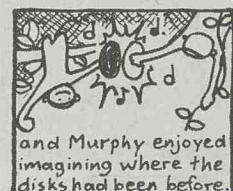 and Murphy enjoyed
imagining where the
disks had been before,